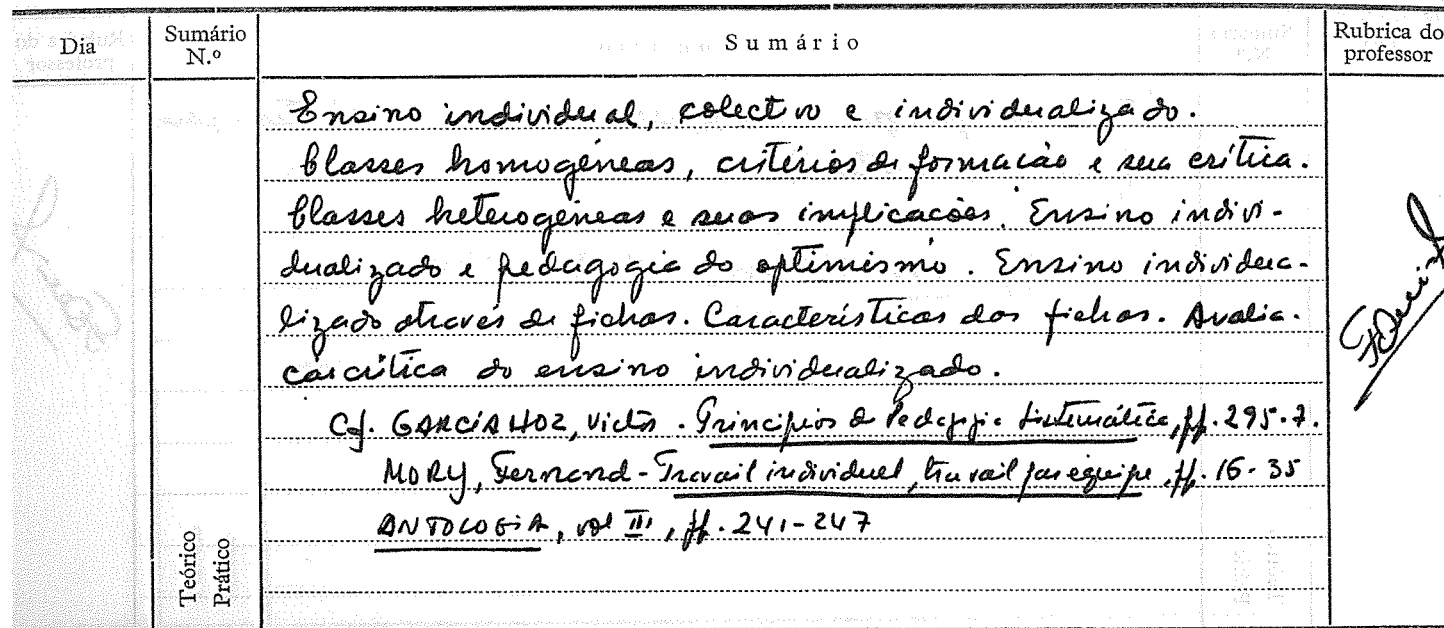 Dia
Sumário N.º
Sumário
Rubrica do professor
Ensino individual, colectivo e individualizado.
Classes homogéneas, critérios de formação e sua crítica.
Classes heterogéneas e suas implicações. Ensino indivi-
dualizado e pedagogia do optimismo. Ensino individua-
lizado através de fichas. Características das fichas. Avalia-
ção crítica do ensino individualizado.
Cf. GARCIA HOZ, Victor - Princípios de Pedagogia Sistemática, pp. 295-7.
MORY, Fernand - Travail individuel, travail par équipe, pp. 16-35
ANTOLOGIA, vol III, pp. 241-247
Teórico
Prático